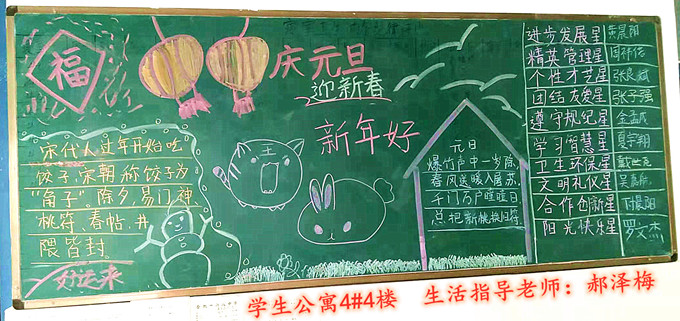 福
庆元旦
迎新春
新年好
宋代人过年开始吃
饺子,宋朝称饺子为
“角子”。除夕,易门神、
桃符、春帖、井
隈皆封
好运来
王
元日
爆竹声中一岁除,
春风送暖入屠苏,
千门万户曈曈日
总把新桃换旧符
进步发展星
精英管理星
个性才艺星 张良斌
团结友爱星 张子强
遵守规纪星
学习智慧星 夏宇翔
卫生环保星
文明礼仪星
合作创新星 付晨阳
阳光快乐星 罗文杰
学生公寓4#4楼 生活指导老师:郝泽梅